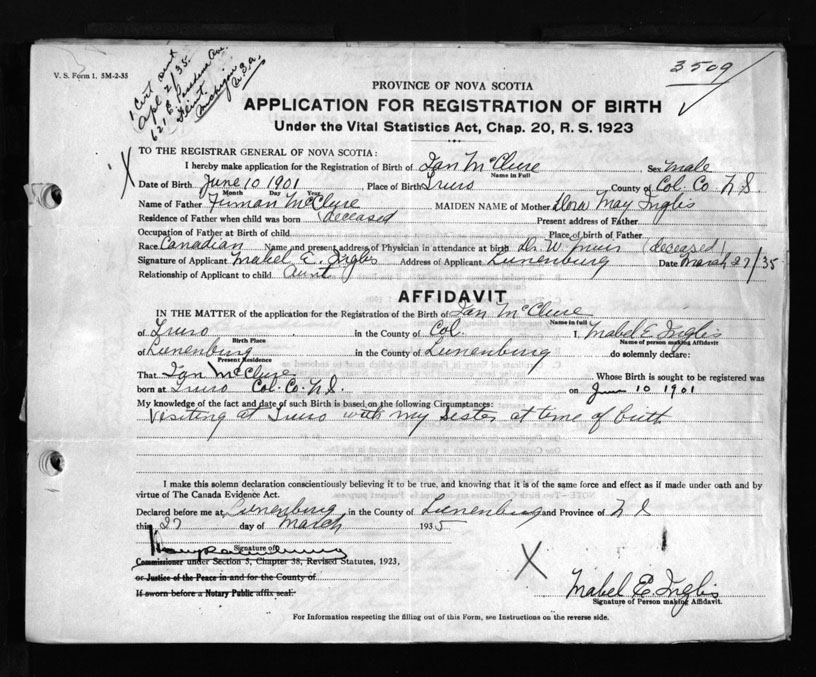 V. S. Form 1. 5M-2-35
1 Cert sent
Apl 2/35.
621 E. Ave.
Flint.
Michigan
U.S.A.
3509
PROVINCE OF NOVA SCOTIA
APPLICATION FOR REGISTRATION OF BIRTH
Under the Vital Statistics Act, Chap. 20, R. S. 1923
TO THE REGISTRAR GENERAL OF NOVA SCOTIA:
I hereby make application for the Registration of Birth of Ian McClure Sex Male
Name in Full
Date of Birth June 10 1901, Place of Birth Truro County of Col. Co. N.S.
Month Day Year
Name of Father Firman McClure MAIDEN NAME of Mother Dora May Inglis
Residence of Father when child was born (deceased Present address of Father
Occupation of Father at Birth of child Place of birth of Father
Race Canadian Name and present address of Physician in attendance at birth Dr. W. Muir (deceased)
Signature of Applicant Mabel E. Inglis Address of Applicant Lunenburg Date March 27/35
Relationship of Applicant to child Aunt
AFFIDAVIT
IN THE MATTER of the application for the Registration of the Birth of Ian McClure
Name in full
of Truro in the County of Col. I, Mabel E. Inglis
Birth Place Name of person making Affidavit
of Lunenburg in the County of Lunenburg do solemnly declare:
Present Residence
That Ian McClure Whose Birth is sought to be registered was
born at Truro Col. Co. N.S. on June 10 1901
My knowledge of the fact and date of such Birth is based on the following Circumstances:
Visiting at Truro with my sister at time of birth
I make this solemn declaration conscientiously believing it to be true, and knowing that it is of the same force and effect as if made under oath and by
virtue of The Canada Evidence Act.
Declared before me at Lunenburg in the County of Lunenburg and Province of N S
this 27 day of March 1935
Signature of
Commissioner under Section 5, Chapter 38, Revised Statutes, 1923,
or Justice of the Peace in and for the County of
If sworn before a Notary Public affix seal.
Mabel E. Inglis
Signature of Person making Affidavit.
For Information respecting the filling out of this Form, see Instructions on the reverse side.